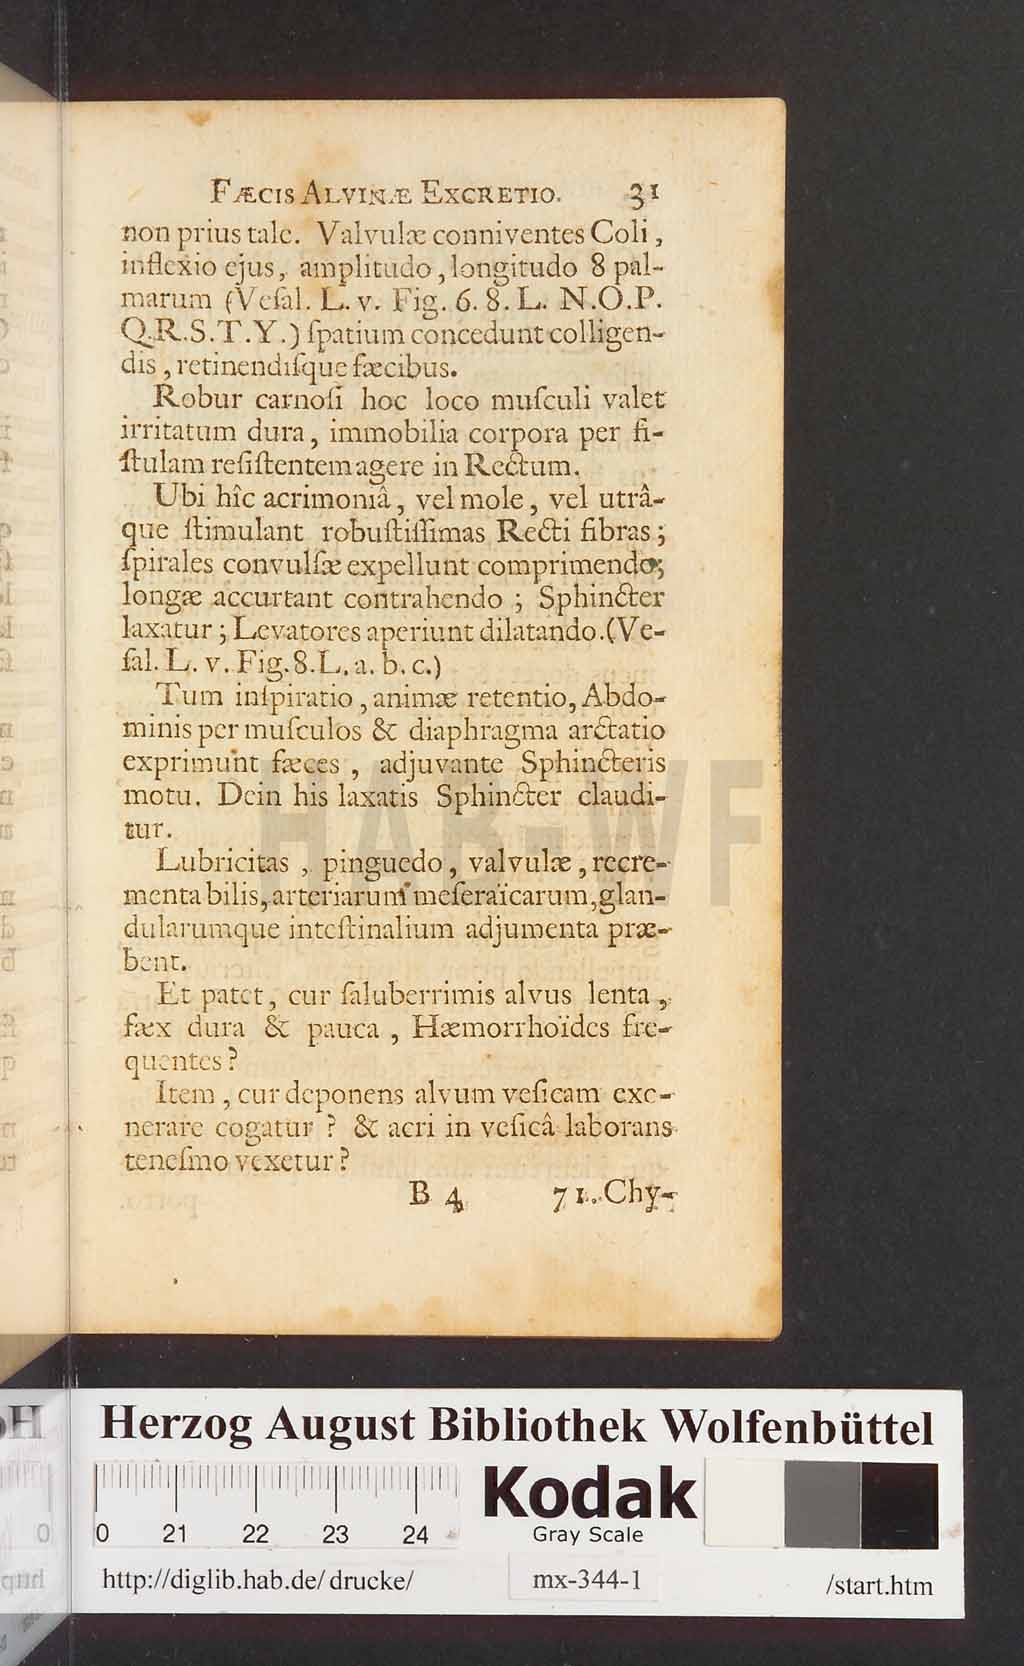 FÆCIS ALVINÆ EXCRETIO. 31
non prius tale. Valvulæ conniventes Coli,
inflexio ejus, amplitudo, longitudo 8 pal-
marum (Veſal. L. v. Fig. 6. 8. L. N.O.P.
Q.R.S.T.Y.) ſpatium concedunt colligen-
dis, retinendiſque fæcibus.
Robur carnoſi hoc loco muſculi valet
irritatum dura, immobilia corpora per fi-
ſtulam reſiſtentem agere in Rectum.
Ubi hîc acrimoniâ, vel mole, vel utrâ-
que ſtimulant robuſtiſſimas Recti fibras;
ſpirales convulſæ expellunt comprimendo;
longæ accurtant contrahendo; Sphincter
laxatur; Levatores aperiunt dilatando. (Ve-
ſal. L. v. Fig. 8. L. a. b. c.)
Tum inſpiratio, animæ retentio, Abdo-
minis per muſculos & diaphragma arctatio
exprimunt fæces, adjuvante Sphincteris
motu. Dein his laxatis Sphincter claudi-
tur.
Lubricitas, pinguedo, valvulæ, recre-
menta bilis, arteriarum meſeraïcarum, glan-
dularumque inteſtinalium adjumenta præ-
bent.
Et patet, cur ſaluberrimis alvus lenta,
fæx dura & pauca, Hæmorrhoïdes fre-
quentes?
Item, cur deponens alvum veſicam exo-
nerare cogatur? & acri in veſicâ laborans
teneſmo vexetur?
B 4 71. Chy-
HAB-WF
Herzog August Bibliothek Wolfenbüttel
0 21 22 23 24
Kodak
Gray Scale
http://diglib.hab.de/drucke/ mx-344-1 /start.htm